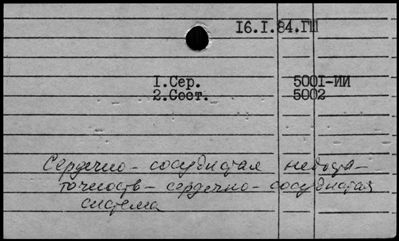 16.I.84.ГШ
1.Сер. 5001-ИИ
2.Сост. 5002
Сердечно - сосудистая недоста-
точность - сердечно - сосудистая
система